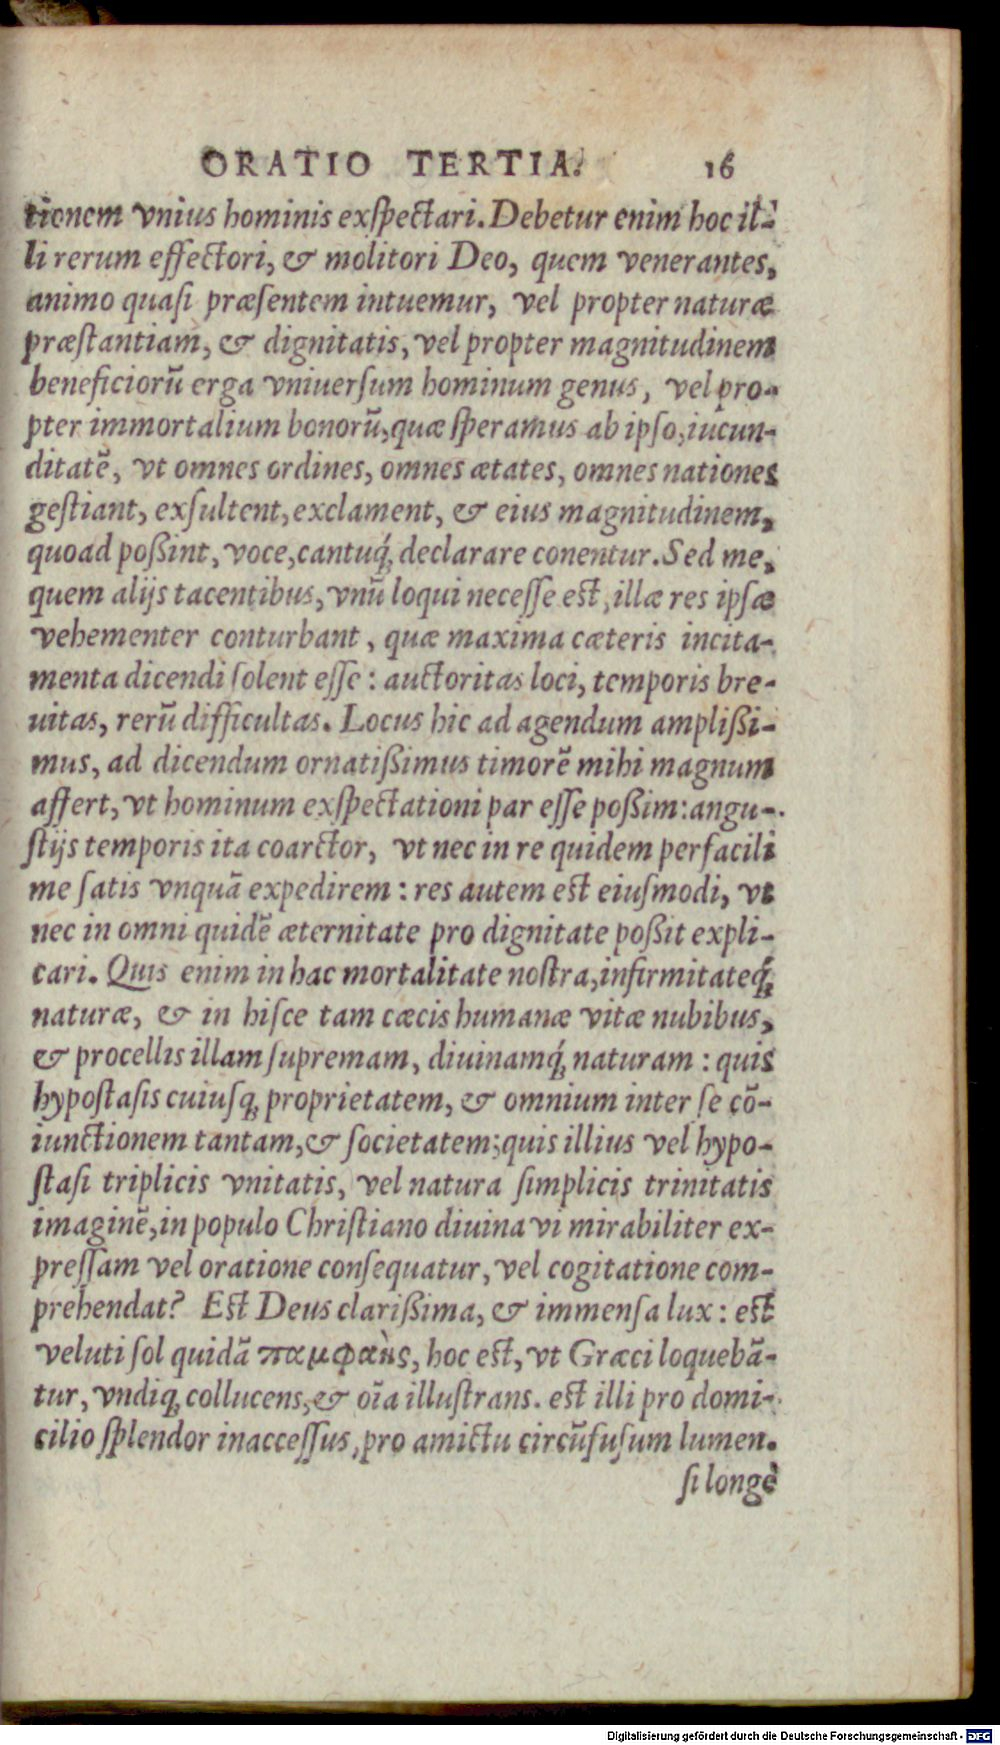 ORATIO TERTIA. 16
tionem vnius hominis exſpectari. Debetur enim hoc il-
li rerum effectori, & molitori Deo, quem venerantes,
animo quaſi præſentem intuemur, vel propter naturæ
præſtantiam, & dignitatis, vel propter magnitudinem
beneficiorū erga vniuerſum hominum genus, vel pro-
pter immortalium bonorū, quæ ſperamus ab ipſo, iucun-
ditatē, vt omnes ordines, omnes ætates, omnes nationes
geſtiant, exſultent, exclament, & eius magnitudinem,
quoad poßint, voce, cantuq́, declarare conentur. Sed me,
quem alijs tacentibus, vnū loqui neceſſe eſt, illæ res ipſæ
vehementer conturbant, quæ maxima cæteris incita-
menta dicendi ſolent eſſe: auctoritas loci, temporis bre-
uitas, rerū difficultas. Locus hic ad agendum amplißi-
mus, ad dicendum ornatißimus timorē mihi magnum
affert, vt hominum exſpectationi par eſſe poßim: angu-
ſtijs temporis ita coarctor, vt nec in re quidem perfacili
me ſatis vnquā expedirem: res autem eſt eiuſmodi, vt
nec in omni quidē æternitate pro dignitate poßit expli-
cari. Quis enim in hac mortalitate noſtra, infirmitateq́,
naturæ, & in hiſce tam cæcis humanæ vitæ nubibus,
& procellis illam ſupremam, diuinamq́, naturam: quis
hypoſtaſis cuiuſq, proprietatem, & omnium inter ſe cō-
iunctionem tantam, & ſocietatem; quis illius vel hypo-
ſtaſi triplicis vnitatis, vel natura ſimplicis trinitatis
imaginē, in populo Chriſtiano diuina vi mirabiliter ex-
preſſam vel oratione conſequatur, vel cogitatione com-
prehendat? Eſt Deus clarißima, & immenſa lux: eſt
veluti ſol quidā παμφαὴς, hoc eſt, vt Græci loquebā-
tur, vndiq, collucens, & oīa illuſtrans. eſt illi pro domi-
cilio ſplendor inacceſſus, pro amictu circūfuſum lumen.
ſi longè
Digitalisierung gefördert durch die Deutsche Forschungsgemeinschaft - DFG